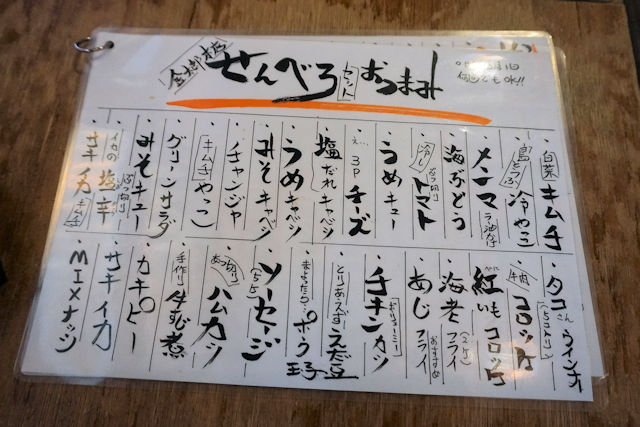 せんべろ
セット
おつまみ
何回でもOK!!
白菜 キムチ
島とうふ 冷やっこ
メンマ ラー油なし
海ぶどう
冷し トマト
うめキュー
え… 3P チーズ
塩だれキャベツ
うめキャベツ
みそキャベツ
チャンジャ
キムチやっこ
グリーンサラダ
みそキュー
イカの塩辛
サキイカキムチ
タコさんウィンナー
牛肉コロッケ
紅いもコロッケ
海老フライ おすすめ
あじフライ
チキンカツ
とりあえずえだ豆
まよったら… ポーク玉子
ソーセージ
あつ切りハムカツ
手作り 牛すじ煮
カキピー
サキイカ
MIXナッツ